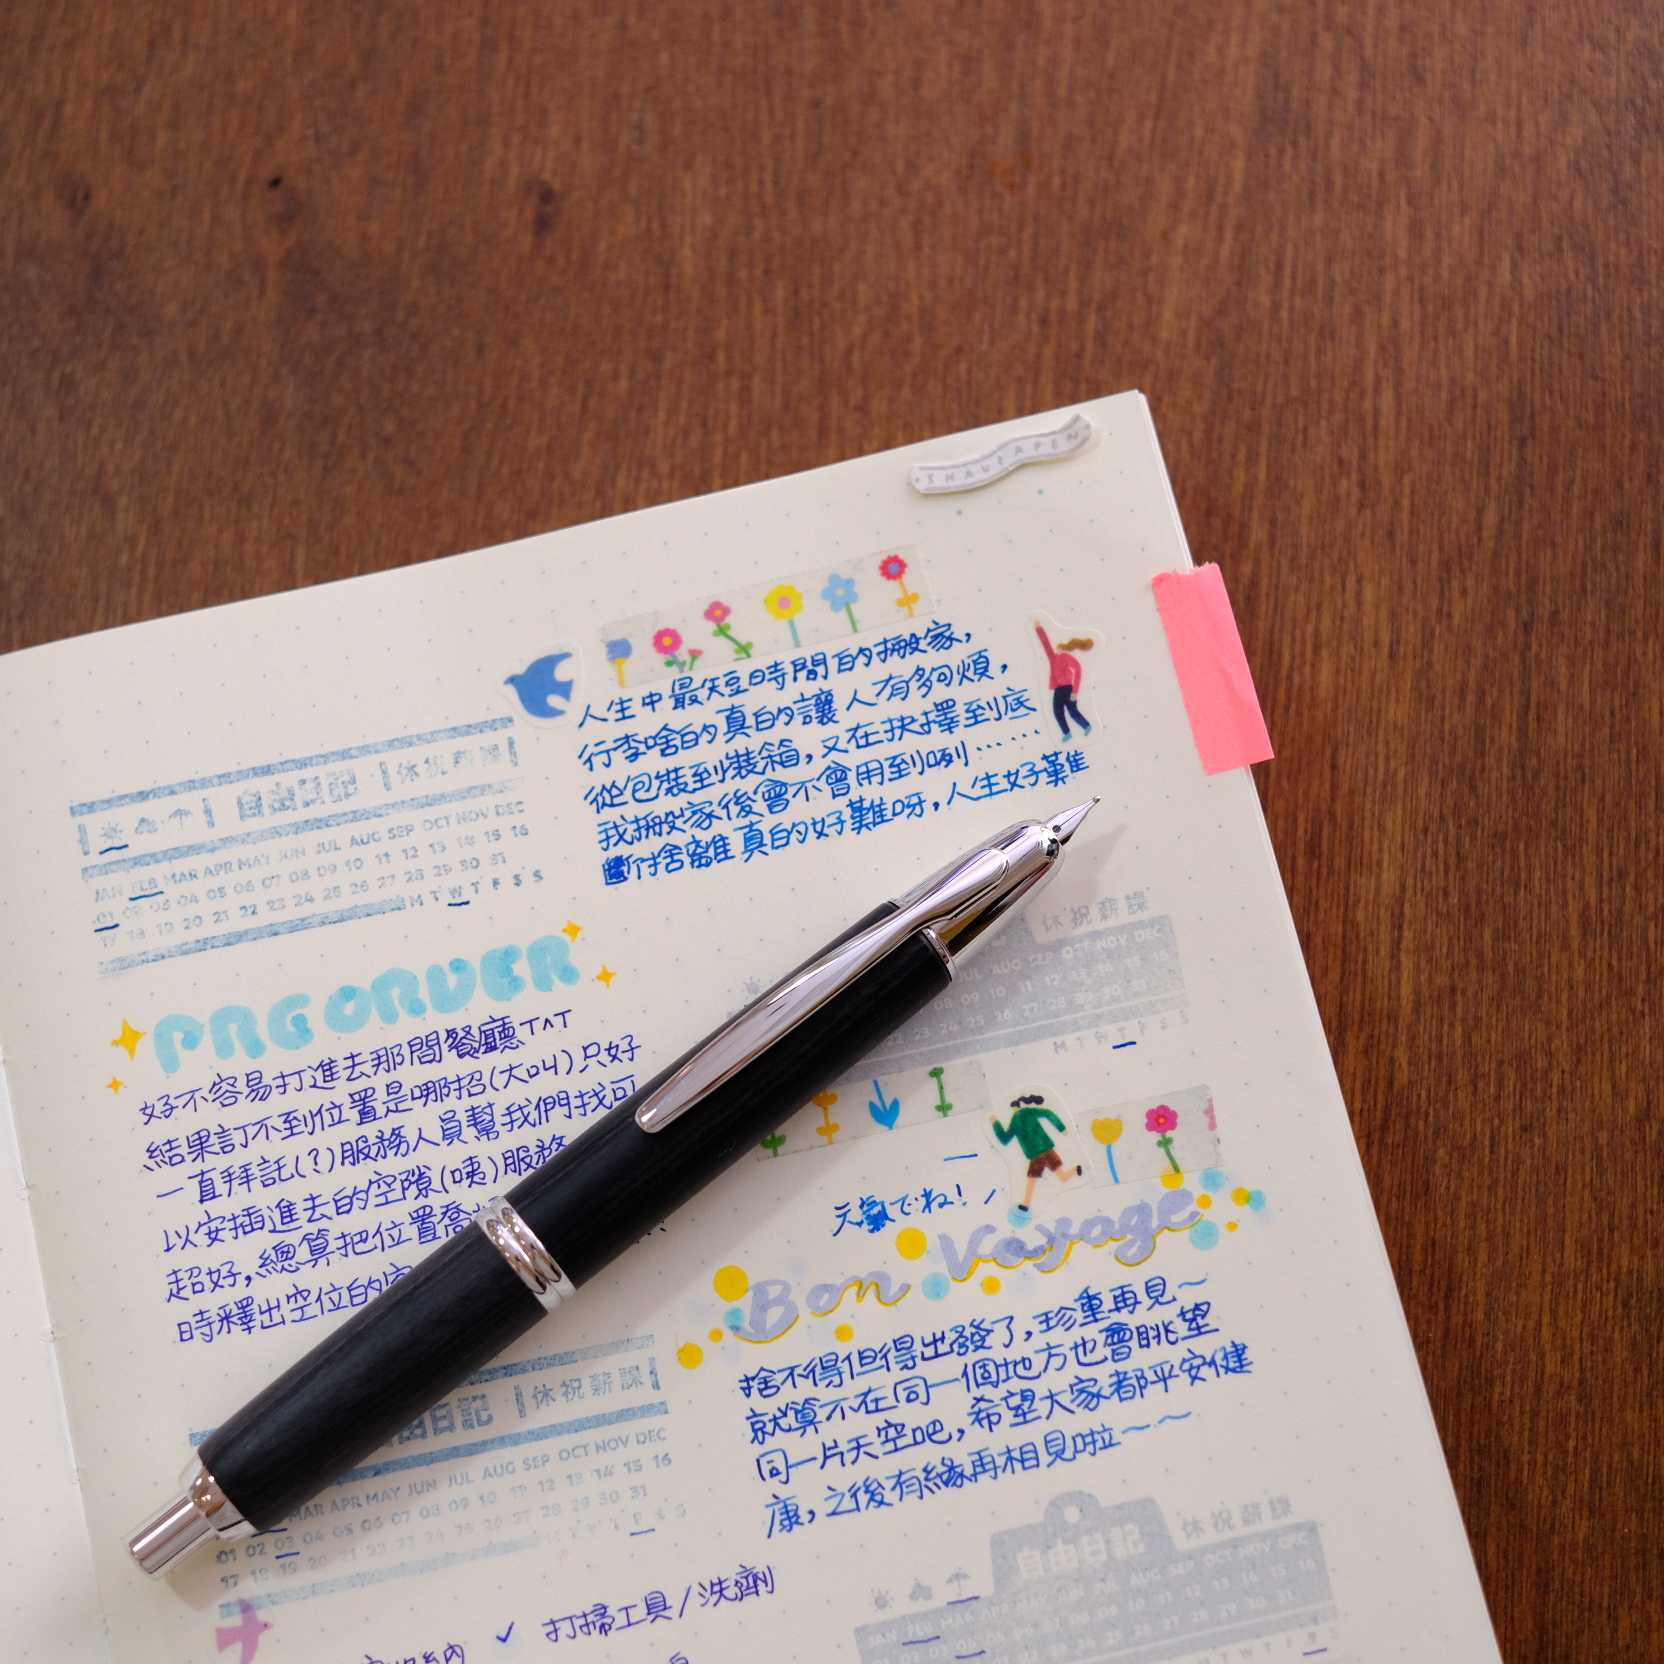 I HAVE A PEN
人生中最短時間的搬家,
行李啥的真的讓人有夠煩,
從包裝到裝箱,又在抉擇到底
我搬家後會不會用到咧……
斷捨離真的好難呀,人生好難
自由日記 休祝薪課
JAN FEB MAR APR MAY JUN JUL AUG SEP OCT NOV DEC
01 02 03 04 05 06 07 08 09 10 11 12 13 14 15 16
17 18 19 20 21 22 23 24 25 26 27 28 29 30 31
M T W T F S S
PREORDER
好不容易打進去那間餐廳TAT
結果訂不到位置是哪招(大叫)只好
一直拜託(?)服務人員幫我們找可
以安插進去的空隙(咦)服務
超好,總算把位置喬
時釋出空位的客
休祝薪課
OCT NOV DEC
JUL AUG SEP
08 09 10 11 12 13 14 15 16
24 25 26 27 28 29 30 31
M T W T F S S
天氣でね!
Bon Voyage
捨不得但得出發了,珍重再見~
就算不在同一個地方也會眺望
同一片天空吧,希望大家都平安健
康,之後有緣再相見啦~~
由日記 休祝薪課
MAR APR MAY JUN JUL AUG SEP OCT NOV DEC
01 02 03 04 05 06 07 08 09 10 11 12 13 14 15 16
17 18 19 20 21 22 23 24 25 26 27 28 29 30 31
M T W T F S S
✓ 打掃工具/洗劑
自由日記 休祝薪課
JAN FEB MAR APR MAY JUN JUL AUG SEP OCT NOV DEC
01 02 03 04 05 06 07 08 09 10 11 12 13 14 15 16